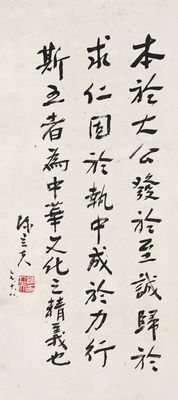 本於大公發於至誠歸於
求仁固於執中成於力行
斯五者為中華文化之精義也
陳立夫